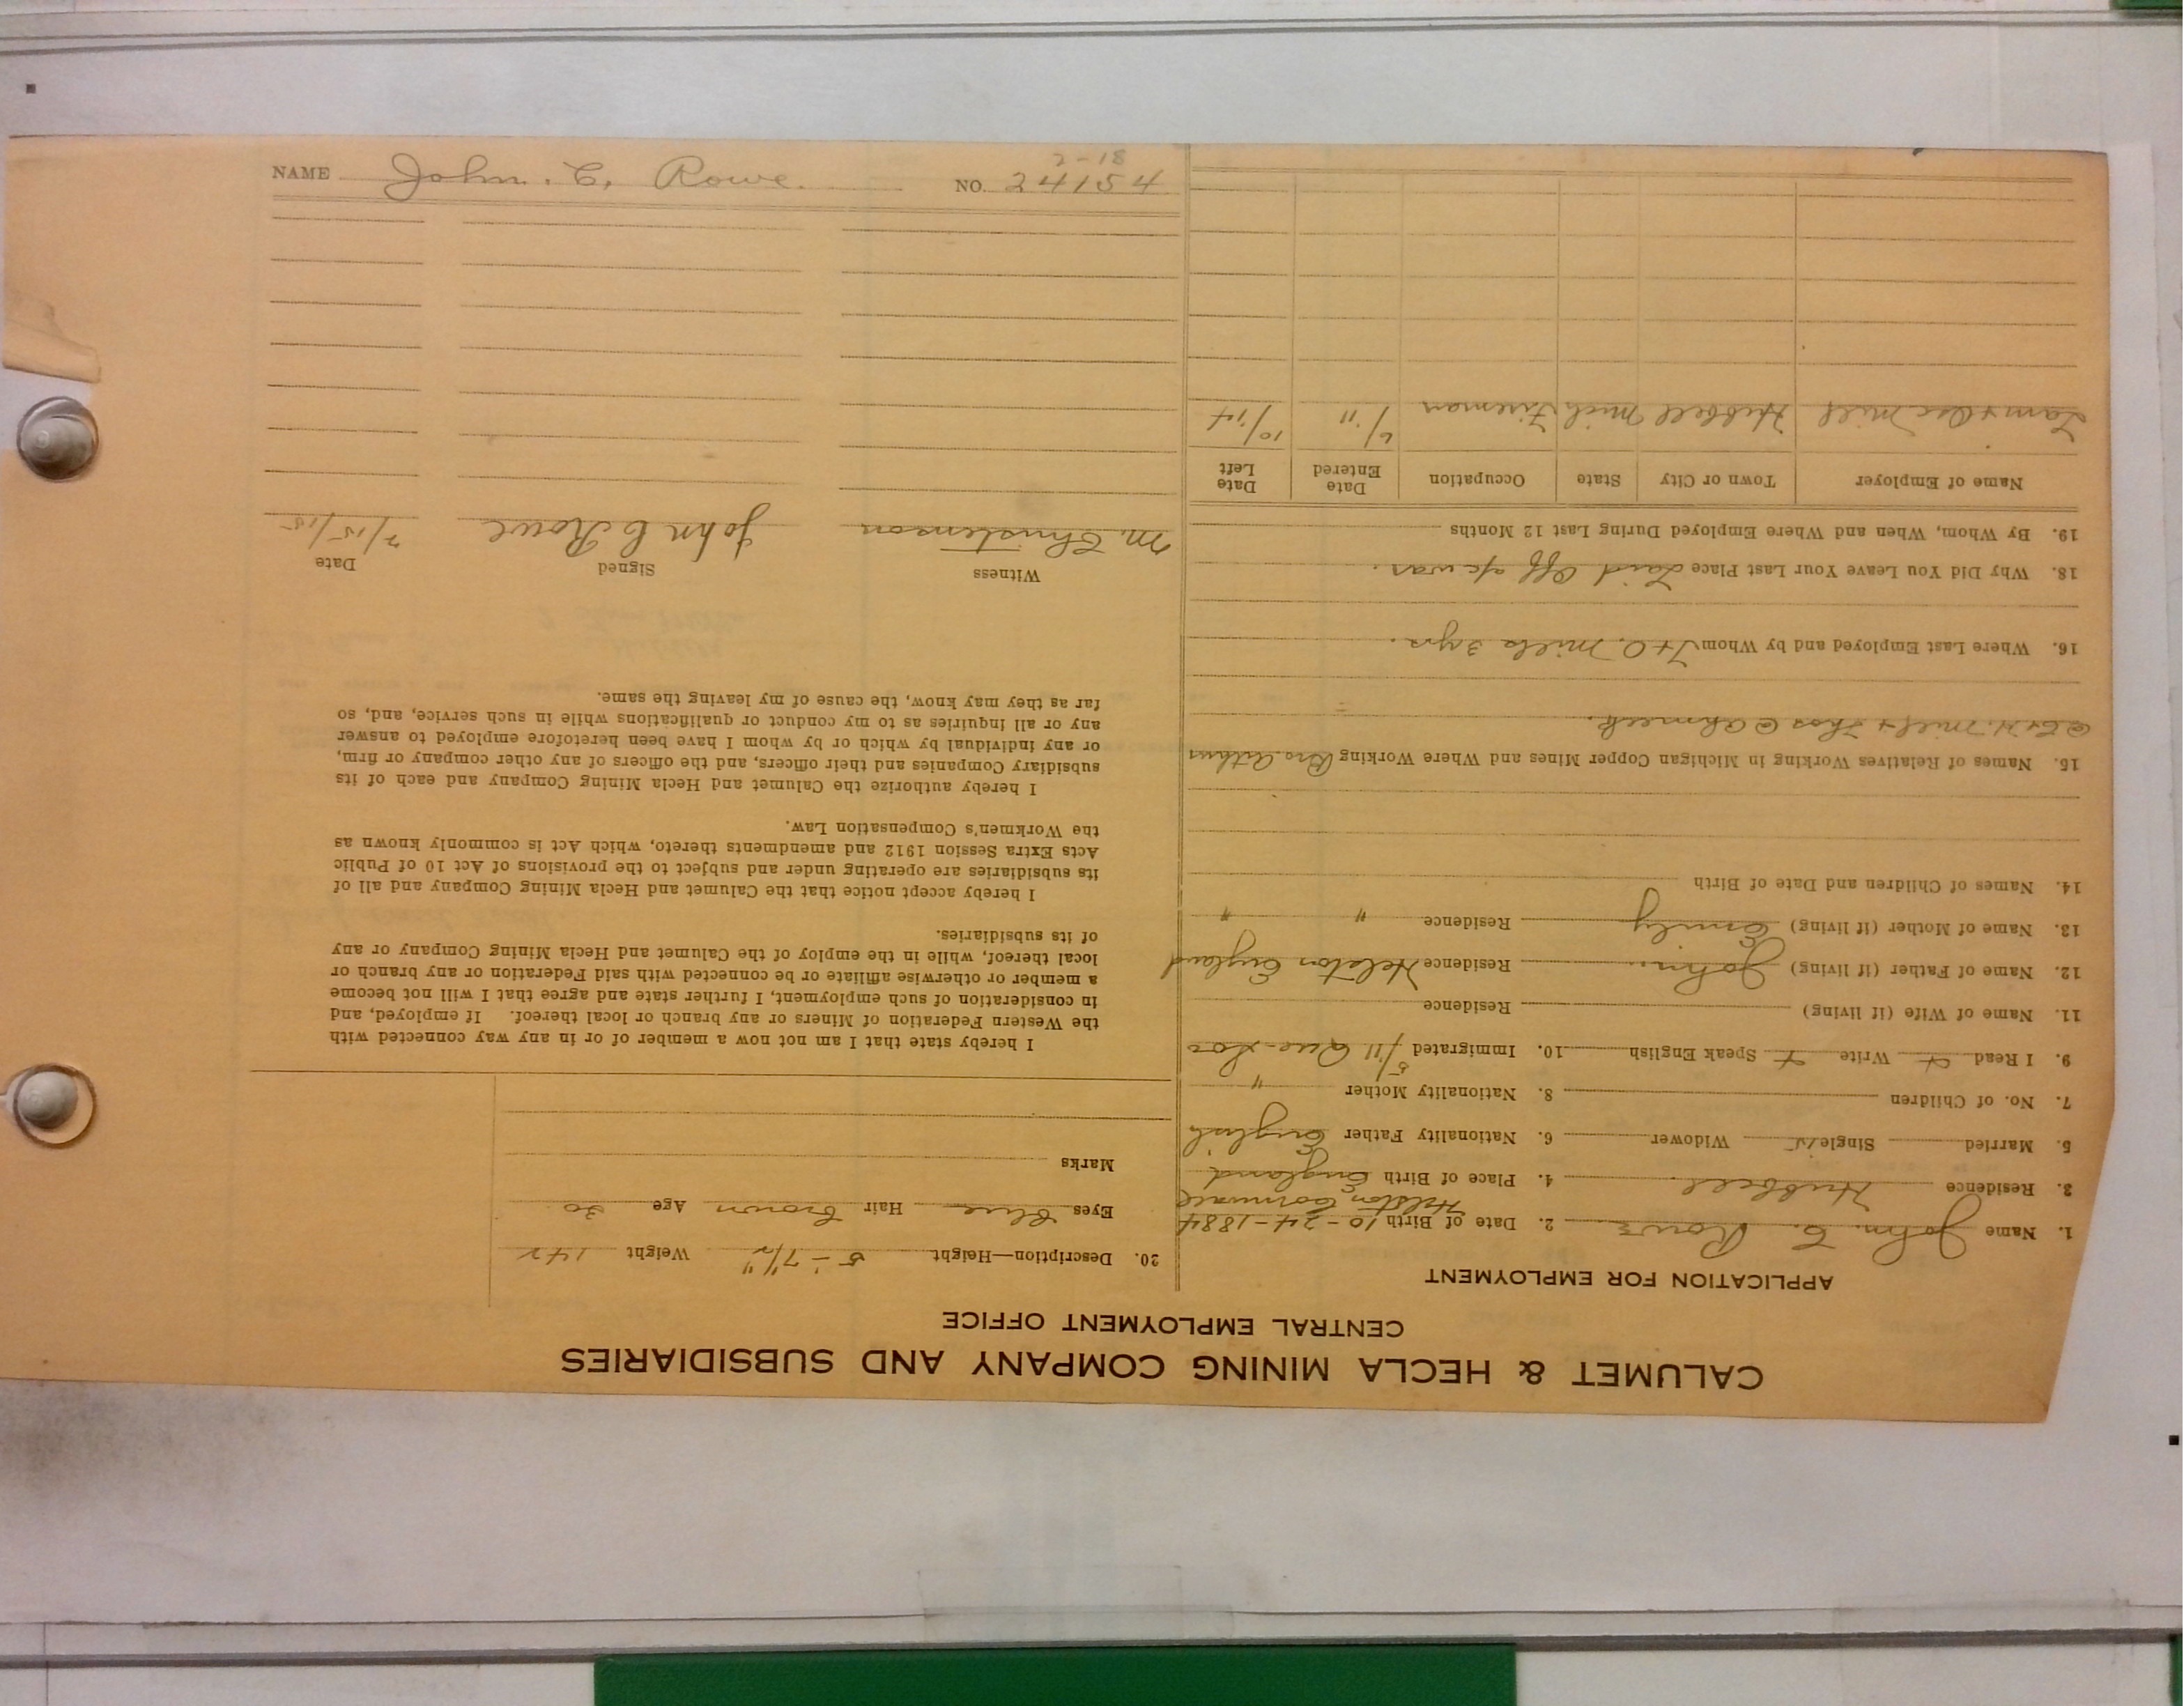 CALUMET & HECLA MINING COMPANY AND SUBSIDIARIES
CENTRAL EMPLOYMENT OFFICE
APPLICATION FOR EMPLOYMENT
1. Name John C. Rowe 2. Date of Birth 10-24-1884
Helston, Cornwall
3. Residence Hubbell 4. Place of Birth England
5. Married Single Widower 6. Nationality Father English
7. No. of Children 8. Nationality Mother "
9. I Read Write Speak English 10. Immigrated 5/11 Que-Soo
11. Name of Wife (if living) Residence
12. Name of Father (if living) John. Residence Helston England
13. Name of Mother (if living) Emily Residence " "
14. Names of Children and Date of Birth
15. Names of Relatives Working in Michigan Copper Mines and Where Working Bro. Arthur
@ C+H. Mill + Thos @ Ahmeek.
16. Where Last Employed and by Whom T+O. Mills 3 yrs.
18. Why Did You Leave Your Last Place Laid Off a/c war.
19. By Whom, When and Where Employed During Last 12 Months
Name of Employer Town or City State Occupation Date Entered Date Left
Tam + Osc Mill Hubbell Mich Fireman 6/11 10/14
20. Description—Height 5-7½" Weight 142
Eyes Blue Hair Brown Age 30
Marks
I hereby state that I am not now a member of or in any way connected with
the Western Federation of Miners or any branch or local thereof. If employed, and
in consideration of such employment, I further state and agree that I will not become
a member or otherwise affiliate or be connected with said Federation or any branch or
local thereof, while in the employ of the Calumet and Hecla Mining Company or any
of its subsidiaries.
I hereby accept notice that the Calumet and Hecla Mining Company and all of
its subsidiaries are operating under and subject to the provisions of Act 10 of Public
Acts Extra Session 1912 and amendments thereto, which Act is commonly known as
the Workmen's Compensation Law.
I hereby authorize the Calumet and Hecla Mining Company and each of its
subsidiary Companies and their officers, and the officers of any other company or firm,
or any individual by which or by whom I have been heretofore employed to answer
any or all inquiries as to my conduct or qualifications while in such service, and, so
far as they may know, the cause of my leaving the same.
Witness Signed Date
M. Christenson John C Rowe 7/15/15
2-18
NAME John. C. Rowe. NO. 24154